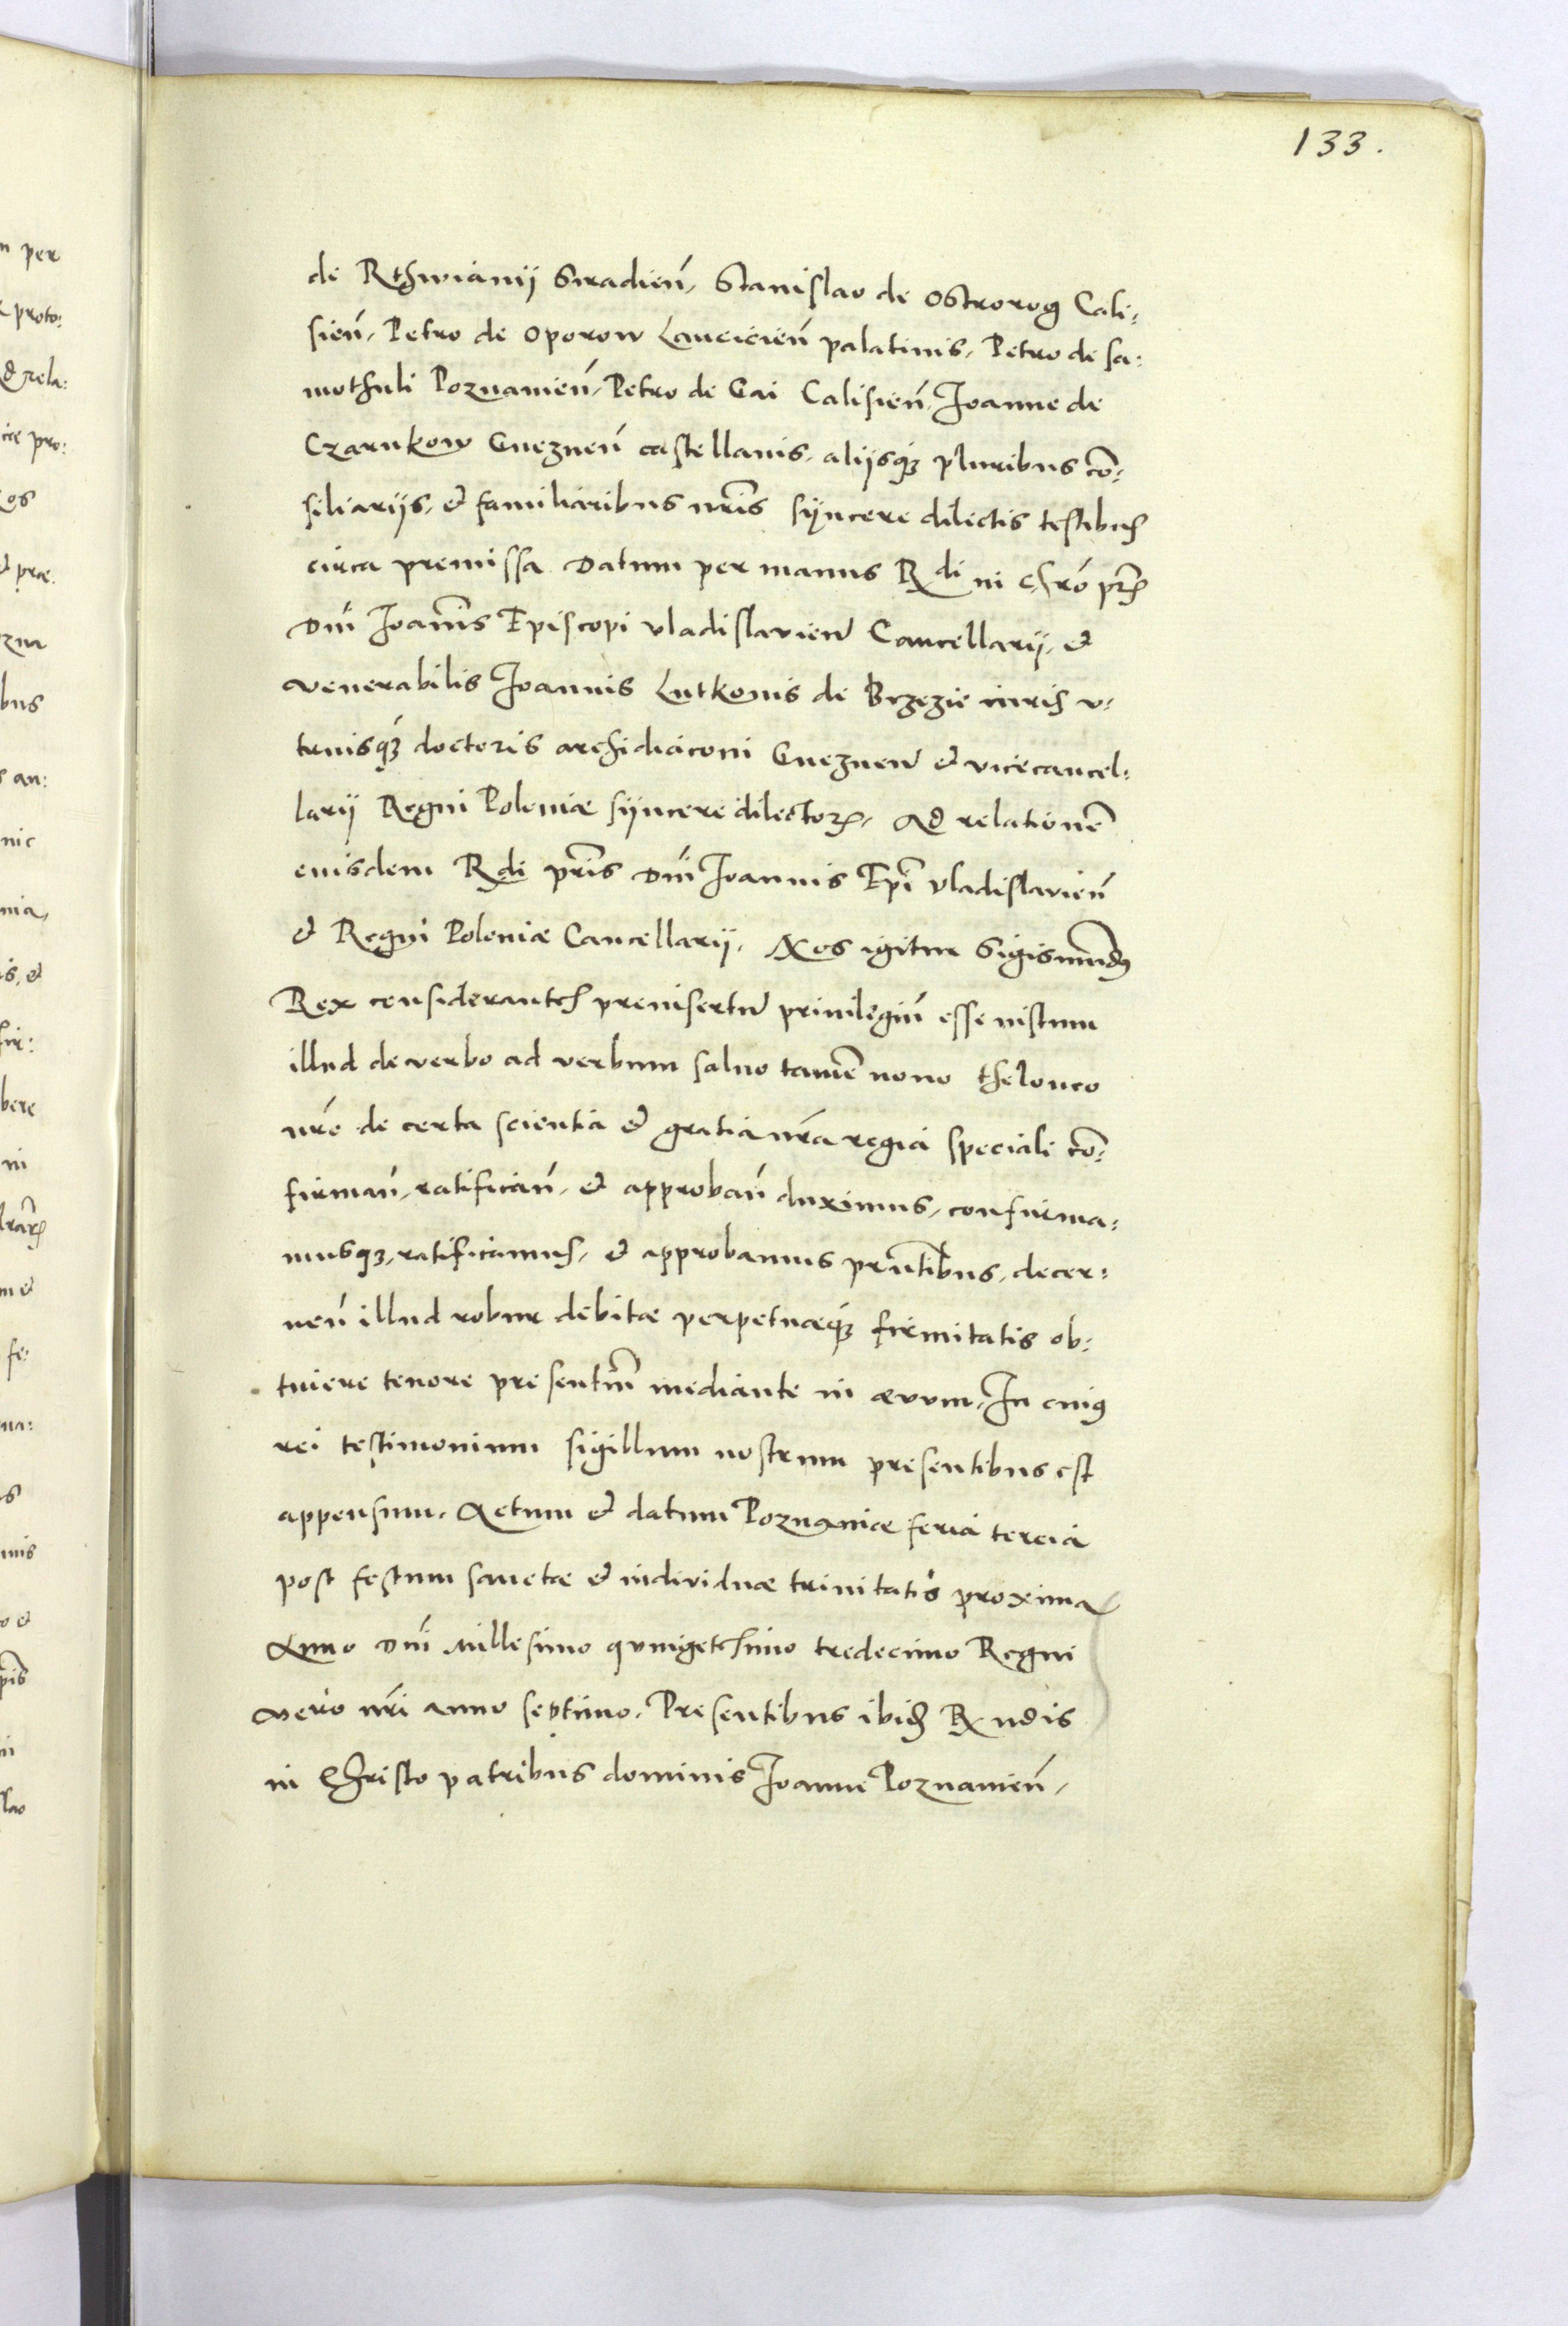 133.
de Rthwianij Siradien̄, Stanislao de Ostrorog Cali:
sien̄, Petro de Oporow Lancicien̄ palatinis, Petro de Sa:
mothuli Poznanien̄, Petro de Gai Calisien̄, Joanne de
Czarnkow Gneznen̄ castellanis, alijsq́ꝫ pluribus cō:
siliarijs, et familiaribus nr̄is sÿncere dilectis testibus
circa premissa Datum per manus Rdi in Chrō pr̄is
Dn̄i Joan̄is Episcopi Vladislavien̄ Cancellarij, et
venerabilis Joannis Lutkonis de Brzezie iuris v:
triusq́ꝫ doctoris archidiaconi Gneznen̄ et vicecancel:
larij Regni Poloniæ sÿncere dilectoꝝ, Ad relationē
eiusdem Rdi pr̄is Dn̄i Joannis Ep̄i Vladislavien̄
et Regni Poloniæ Cancellarij, Nos igitur Sigismūdꝰ
Rex considerantes preinsertū privilegiū esse iustum
illud de verbo ad verbum salvo tamē novo theloneo
nr̄o de certa scientia et gratia nr̄a regia speciali cō:
firman̄, ratifican̄, et approban̄ duximus, confirma:
musqꝫ, ratificamus, et approbamus prn̄tibus, decer:
nen̄ illud robur debitæ perpetuæq́ꝫ firmitatis ob:
tinere tenore presentiū mediante in ævum, In cuiꝰ
rei testimonium sigillum nostrum presentibus est
appensum, Actum et datum Poznaniæ feria tercia
post festum sanctæ et individuæ trinitatis proxima
Anno Dn̄i Millesimo quingetesimo tredecimo Regni
vero nr̄i anno septimo, Presentibus ibidē Rndis
in Christo patribus dominis Joanne Poznanien̄,